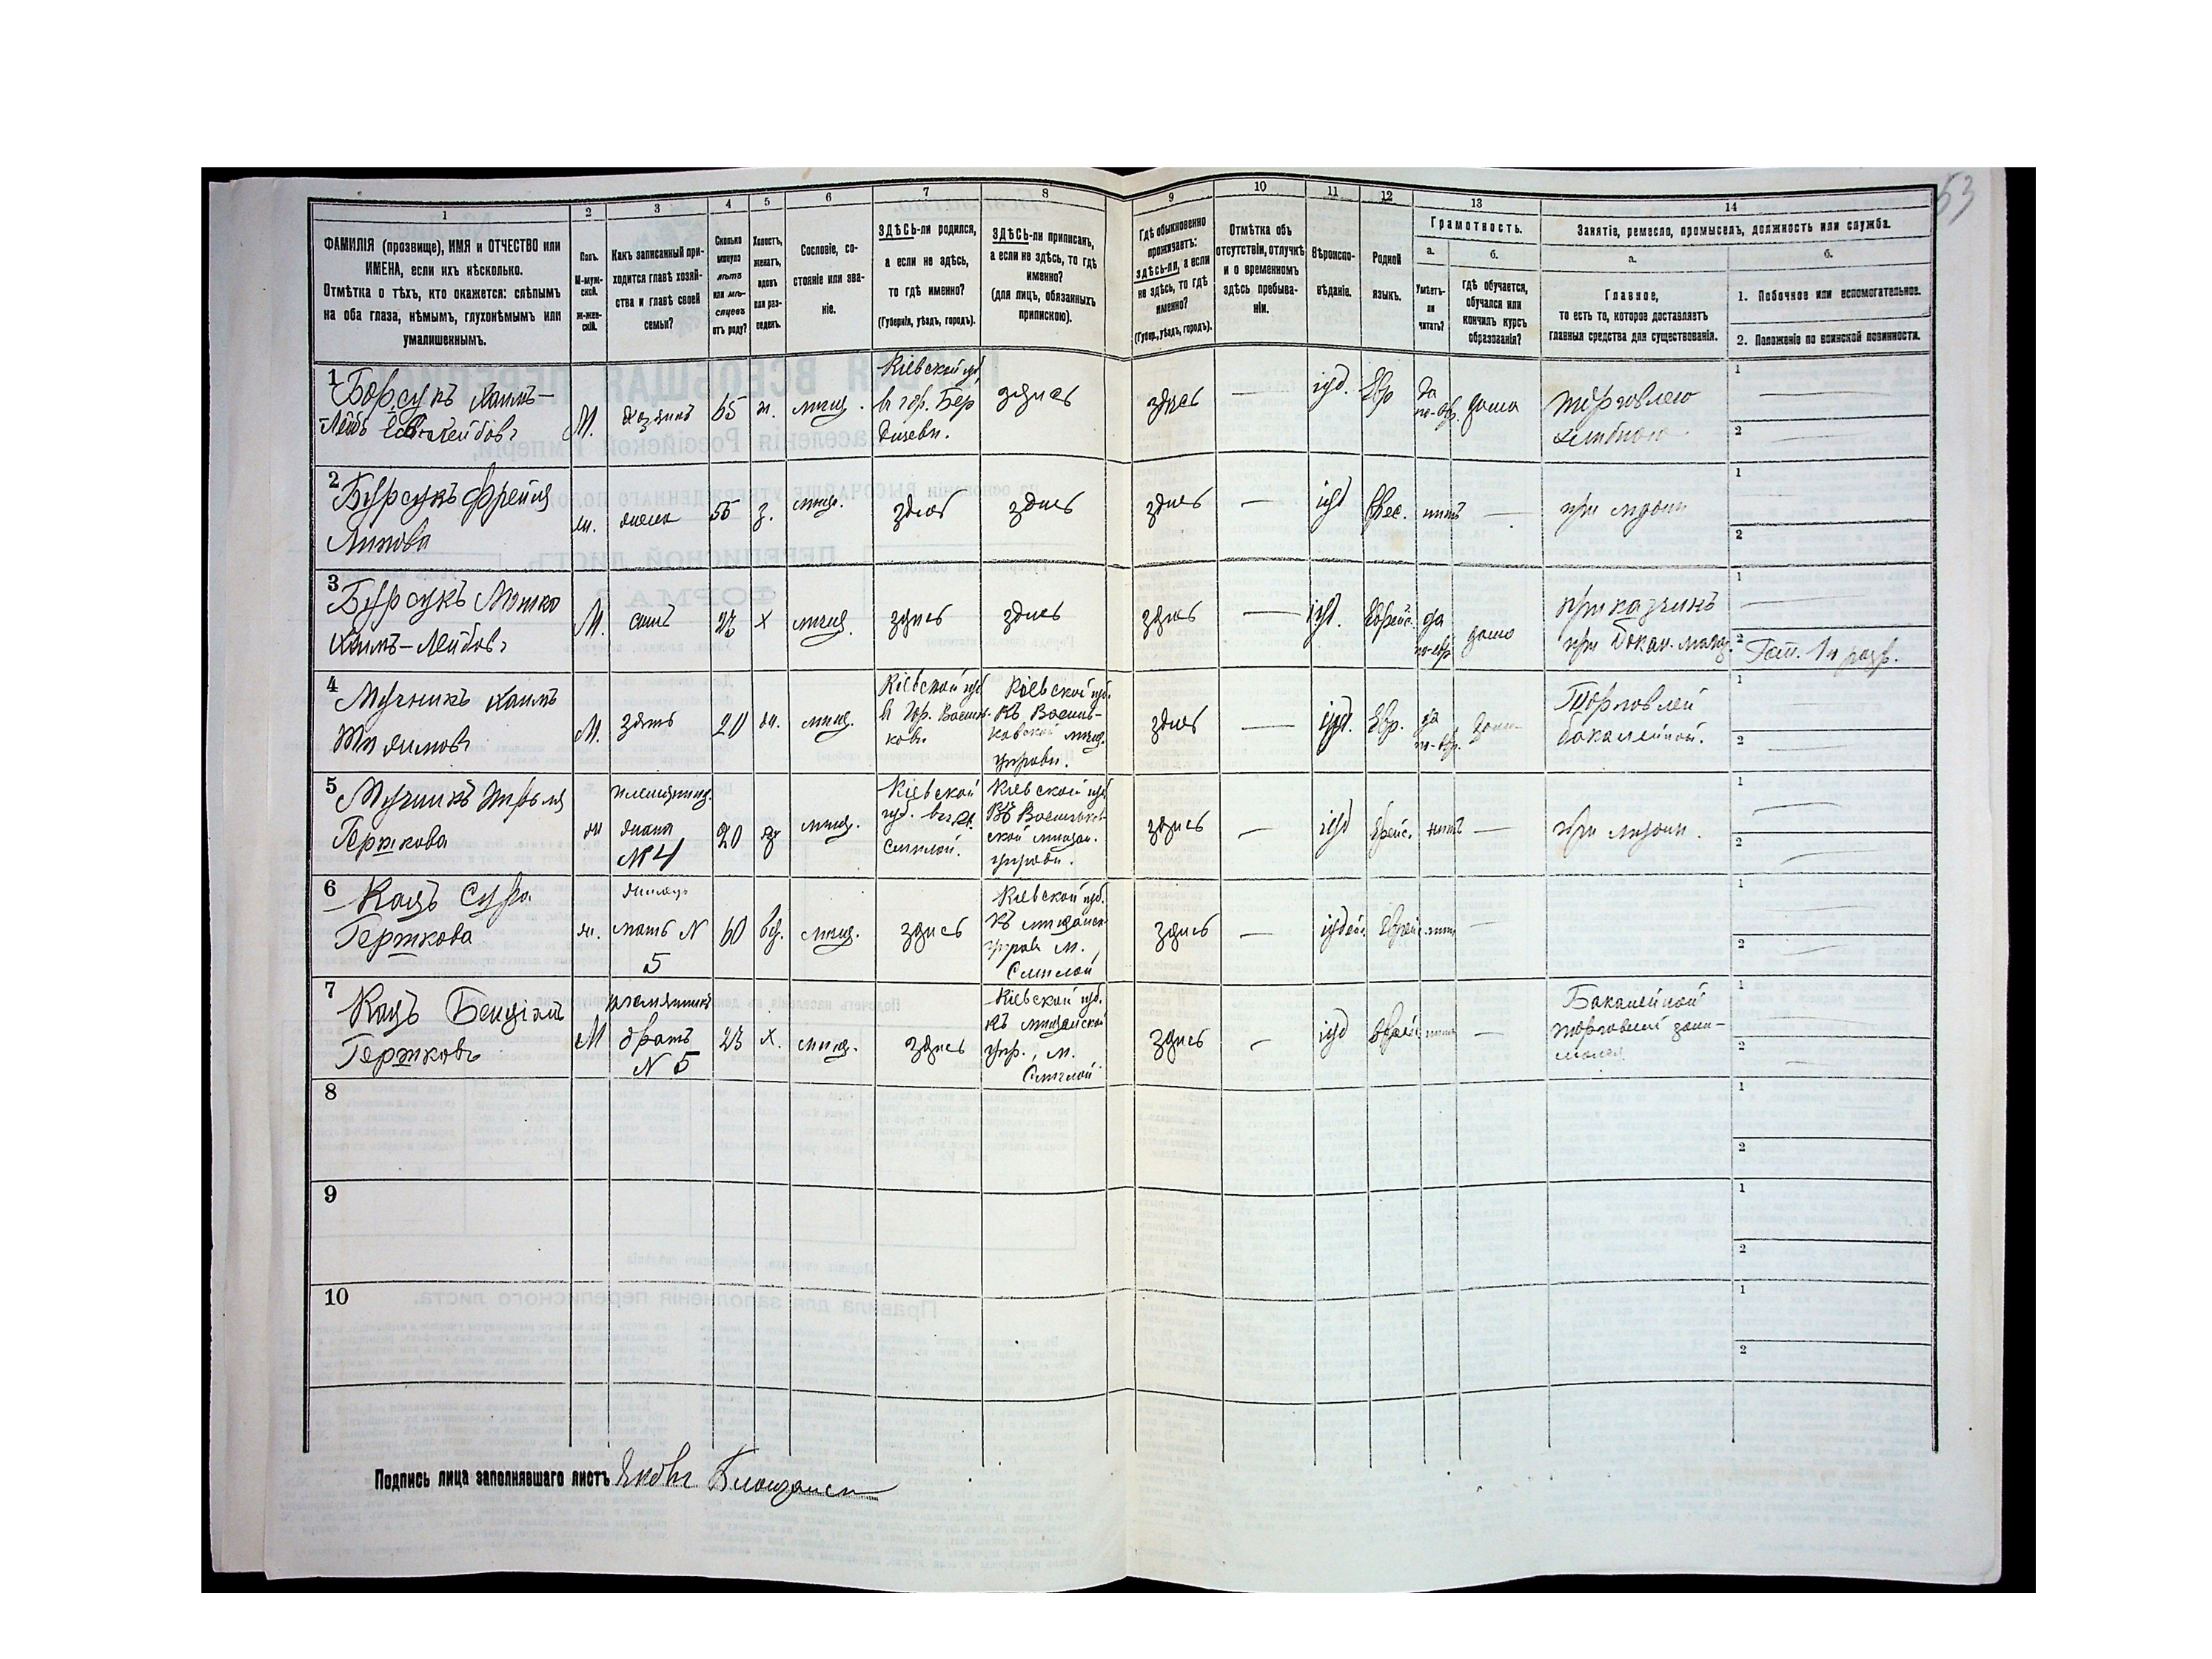 63
1
ФАМИЛІЯ (прозвище), ИМЯ и ОТЧЕСТВО или
ИМЕНА, если ихъ нѣсколько.
Отмѣтка о тѣхъ, кто окажется: слѣпымъ
на оба глаза, нѣмымъ, глухонѣмымъ или
умалишеннымъ.
2
Полъ.
М-муж-
ской.
ж-жен-
скій.
3
Какъ записанный при-
ходится главѣ хозяй-
ства и главѣ своей
семьи?
4
Сколько
минуло
лѣтъ
или мѣ-
сяцевъ
отъ роду?
5
Холостъ,
женатъ,
вдовъ
или раз-
веденъ.
6
Сословіе, со-
стояніе или зва-
ніе.
7
ЗДѢСЬ-ли родился,
а если не здѣсь,
то гдѣ именно?
(Губернія, уѣздъ, городъ).
8
ЗДѢСЬ-ли приписанъ,
а если не здѣсь, то гдѣ
именно?
(для лицъ, обязанныхъ
припискою).
9
Гдѣ обыкновенно
проживаетъ:
здѣсь-ли, а если
не здѣсь, то гдѣ
именно?
(Губер., уѣздъ, городъ).
10
Отмѣтка объ
отсутствіи, отлучкѣ
и о временномъ
здѣсь пребыва-
ніи.
11
Вѣроиспо-
вѣданіе.
12
Родной
языкъ.
13
Грамотность.
а.
Умѣетъ-
ли
читать?
б.
Гдѣ обучается,
обучался или
кончилъ курсъ
образованія?
14
Занятіе, ремесло, промыселъ, должность или служба.
а.
Главное,
то есть то, которое доставляетъ
главныя средства для существованія.
б.
1. Побочное или вспомогательное.
2. Положеніе по воинской повинности.
1
Борсукъ Хаимъ-
Лейбъ Лейбовъ
М.
хозяинъ
65
ж.
мѣщ.
Кіевской губ,
въ гор. Бер
дичевѣ.
здѣсь
здѣсь
іуд.
Евр
да
по-евр.
дома
торговлею
хлѣбною
1
2
2
Бурсукъ Фрейда
ж.
жена
55
з.
мѣщ.
здѣсь
здѣсь
здѣсь
—
іуд
нѣтъ
—
при мужѣ
1
2
3
Бурсукъ Мошко
Хаимъ-Лейбовъ
М.
сынъ
23
х
мѣщ.
здѣсь
здѣсь
здѣсь
—
іуд.
Еврейс.
да
по-евр
дома
приказчикъ
при бокал. магаз.
1
2
Рат. 1й разр.
4
Мучникъ Хаимъ
М.
зять
20
ж.
мѣщ.
Кіевской губ
въ гор. Василь-
ковѣ
Кіевской губ.
къ Василь-
ковской мѣщ.
управѣ.
здѣсь
—
іуд.
Евр.
да
по-евр.
дома
Торговлей
бакалейной.
1
2
5
Мучникъ
Гершкова
ж
племянница
жена
№ 4
20
з
мѣщ.
Кіевской
губ. въ м.
Смѣлой.
Кіевской губ
Въ Васильков-
ской мѣщан.
управѣ.
здѣсь
—
іуд
Еврейс.
нѣтъ
—
при мужѣ.
1
2
6
Кацъ Сура
Гершкова
ж.
мать №
5
60
вд.
мѣщ.
здѣсь
Кіевской губ.
къ мѣщанск
управѣ м.
Смѣлой
здѣсь
—
іудей.
Еврейс.
нѣтъ
—
1
2
7
Кацъ Бенціонъ
Гершковъ
М
племянникъ
братъ
№ 5
23
х.
мѣщ.
здѣсь
Кіевской губ.
къ мѣщанской
упр., м.
Смѣлой
здѣсь
—
іуд
Еврейс
нѣтъ
—
Бакалейной
торговлей зани-
мался
1
2
8
1
2
9
1
2
10
1
2
Подпись лица заполнявшаго листъ Яковъ